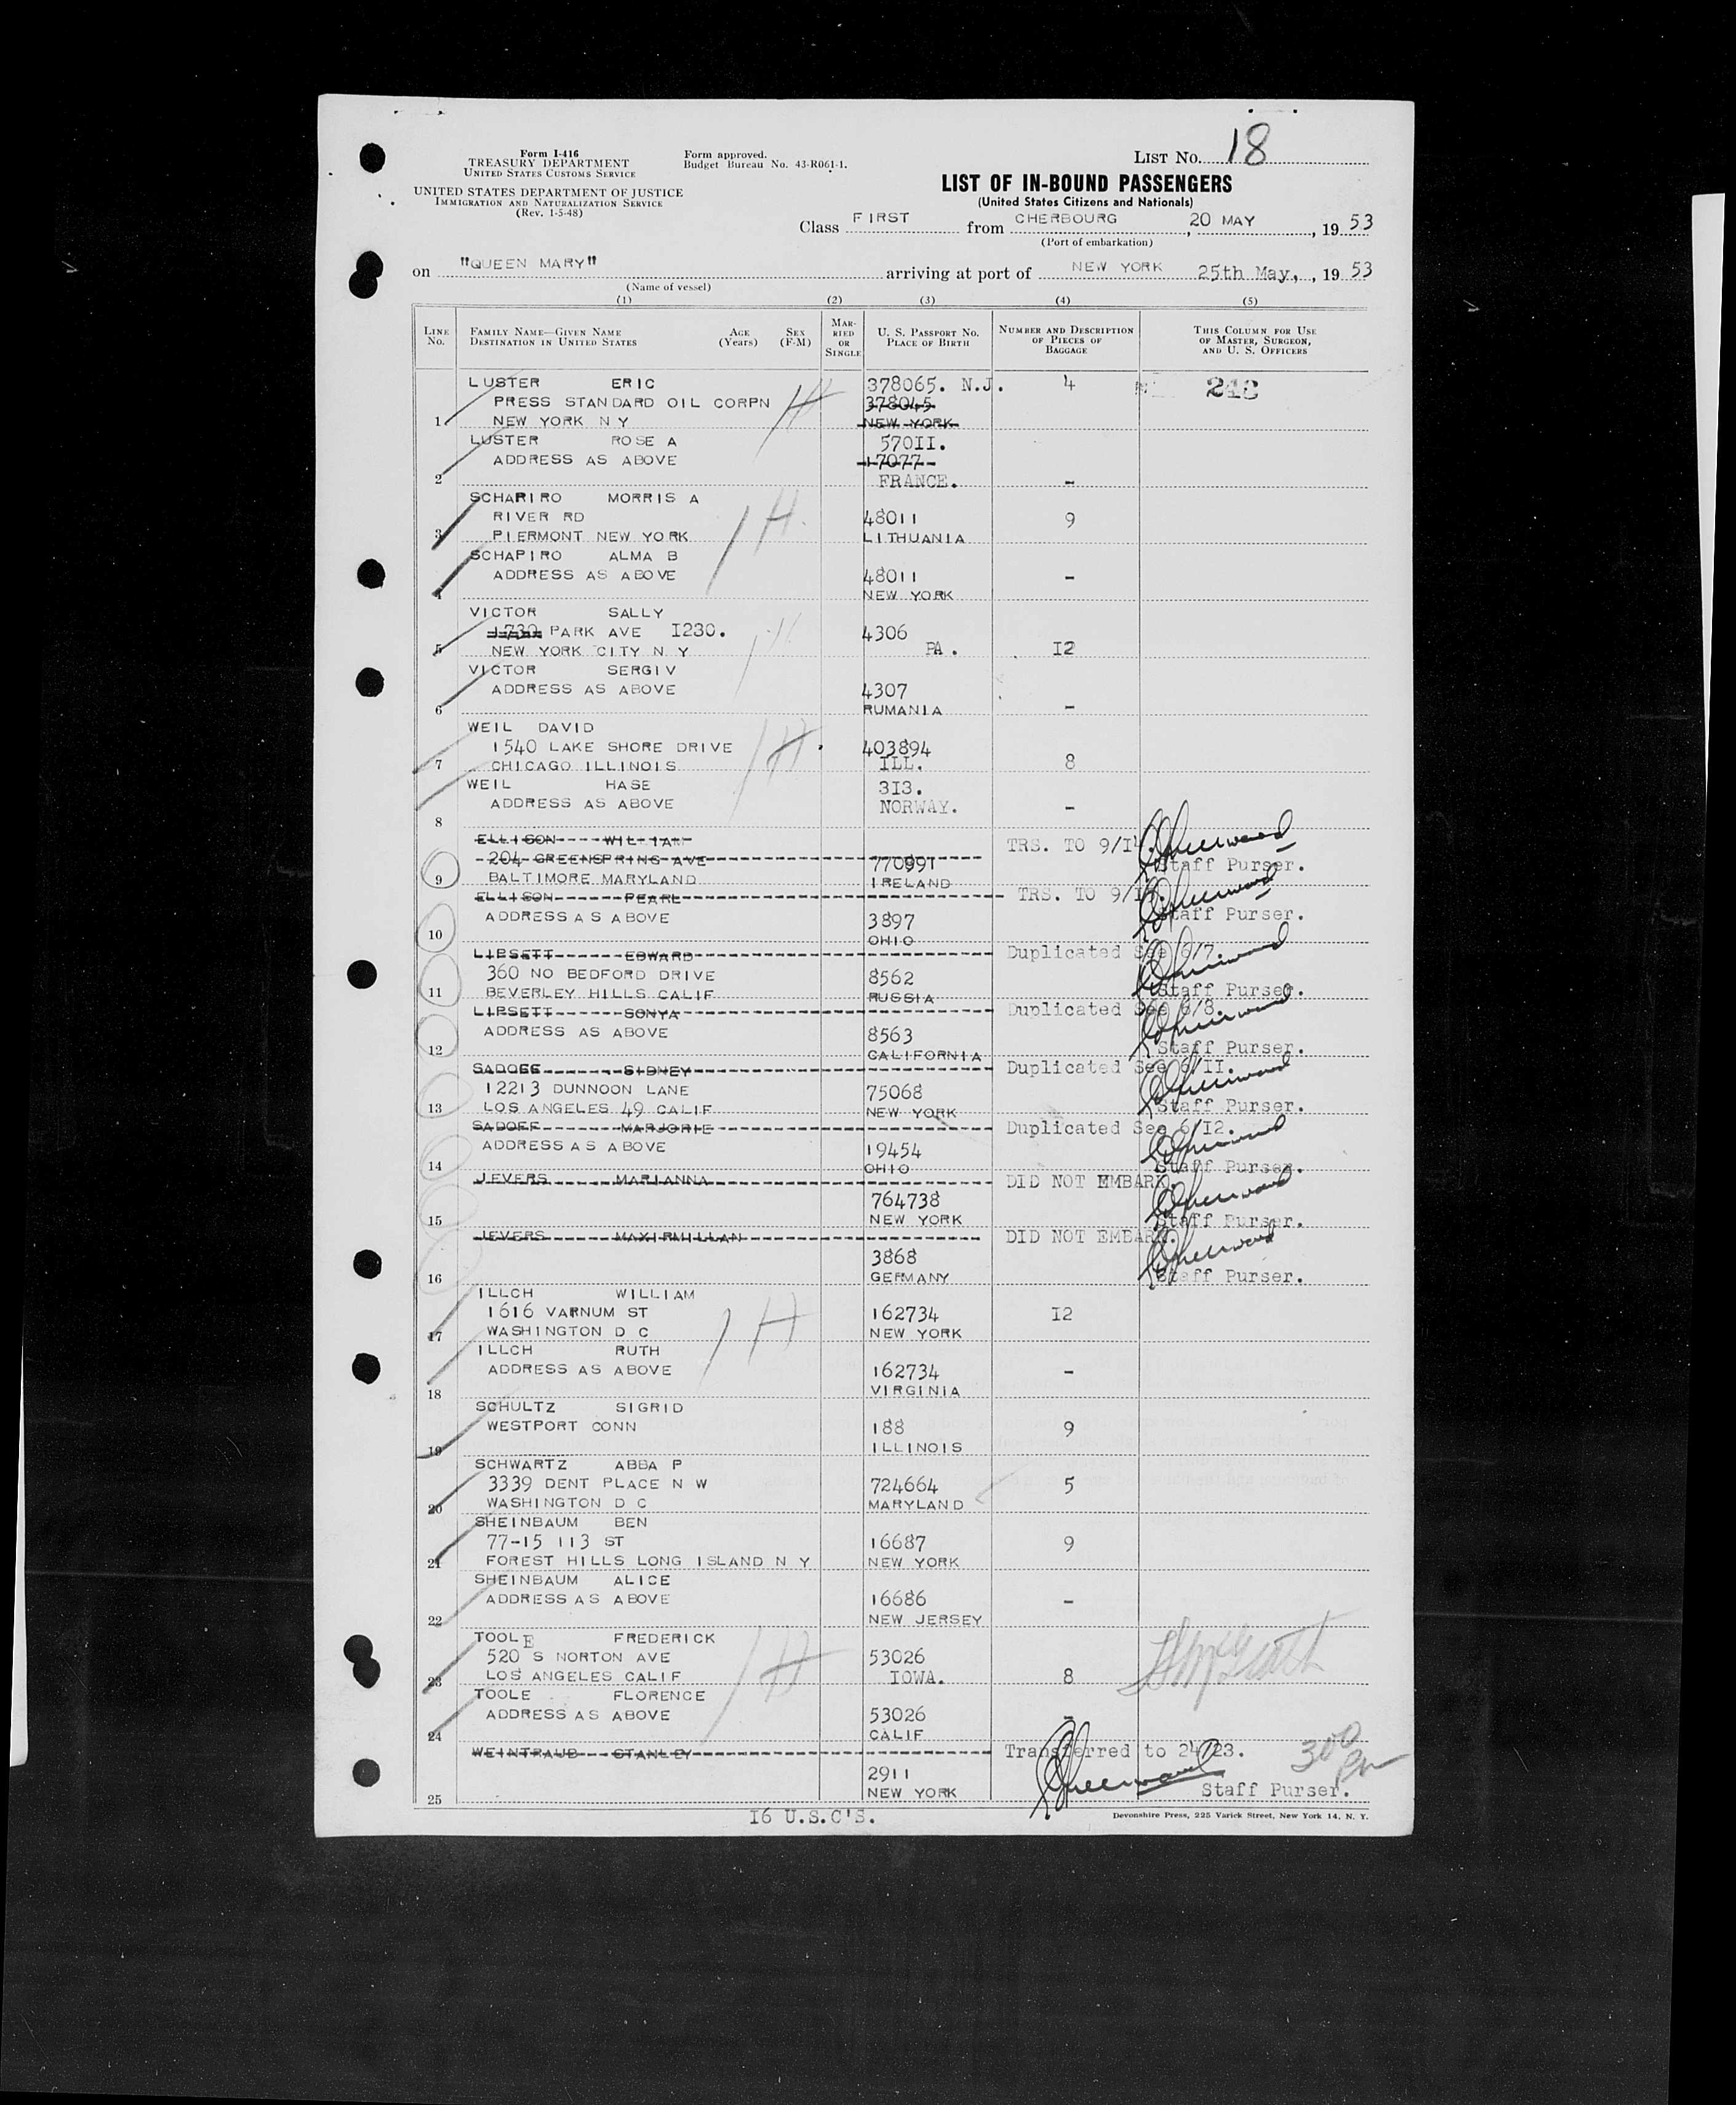 Form I-416
TREASURY DEPARTMENT
UNITED STATES CUSTOMS SERVICE
UNITED STATES DEPARTMENT OF JUSTICE
IMMIGRATION AND NATURALIZATION SERVICE
(Rev. 1-5-48)
Form approved.
Budget Bureau No. 43-R061-1.
LIST NO. 18
LIST OF IN-BOUND PASSENGERS
(United States Citizens and Nationals)
Class FIRST from CHERBOURG, 20 MAY, 1953
(Port of embarkation)
on "QUEEN MARY" arriving at port of NEW YORK 25th May, , 1953
(Name of vessel)
(1) (2) (3) (4) (5)
LINE No. FAMILY NAME—GIVEN NAME DESTINATION IN UNITED STATES AGE (Years) SEX (F-M) MARRIED OR SINGLE U. S. PASSPORT NO. PLACE OF BIRTH NUMBER AND DESCRIPTION OF PIECES OF BAGGAGE THIS COLUMN FOR USE OF MASTER, SURGEON, AND U. S. OFFICERS
LUSTER ERIC 378065. N.J. 4
PRESS STANDARD OIL CORPN 378045
1 NEW YORK N Y NEW YORK
LUSTER ROSE A 57011.
ADDRESS AS ABOVE 17077
2 FRANCE. -
SCHARIRO MORRIS A
RIVER RD 48011 9
3 PIERMONT NEW YORK LITHUANIA
SCHAPIRO ALMA B
ADDRESS AS ABOVE 48011 -
4 NEW YORK
VICTOR SALLY
1730 PARK AVE I230. 4306
5 NEW YORK CITY N Y PA. I2
VICTOR SERGIV
ADDRESS AS ABOVE 4307
6 RUMANIA -
WEIL DAVID
1540 LAKE SHORE DRIVE 403894
7 CHICAGO ILLINOIS ILL. 8
WEIL HASE 3I3.
ADDRESS AS ABOVE NORWAY. -
8
ELLISON WILLIAM TRS. TO 9/14.
204 GREENSPRING AVE 770991 Staff Purser.
9 BALTIMORE MARYLAND IRELAND
ELLISON PEARL TRS. TO 9/
ADDRESS AS ABOVE 3897 Staff Purser.
10 OHIO
LIPSETT EDWARD Duplicated See 6/7.
360 NO BEDFORD DRIVE 8562
11 BEVERLEY HILLS CALIF RUSSIA Staff Purser.
LIPSETT SONYA Duplicated See 6/8.
ADDRESS AS ABOVE 8563
12 CALIFORNIA Staff Purser.
SADOFF SIDNEY Duplicated See 6/II.
12213 DUNNOON LANE 75068
13 LOS ANGELES 49 CALIF NEW YORK Staff Purser.
SADOFF MARJORIE Duplicated See 6/I2.
ADDRESS AS ABOVE 19454
14 OHIO Staff Purser.
JEVERS MARIANNA DID NOT EMBARK.
764738
15 NEW YORK Staff Purser.
JEVERS MAXIRMILLAN DID NOT EMBARK.
3868
16 GERMANY Staff Purser.
ILLCH WILLIAM
1616 VARNUM ST 162734 I2
17 WASHINGTON D C NEW YORK
ILLCH RUTH
ADDRESS AS ABOVE 162734 -
18 VIRGINIA
SCHULTZ SIGRID
WESTPORT CONN 188 9
19 ILLINOIS
SCHWARTZ ABBA P
3339 DENT PLACE N W 724664 5
20 WASHINGTON D C MARYLAND
SHEINBAUM BEN
77-15 113 ST 16687 9
21 FOREST HILLS LONG ISLAND N Y NEW YORK
SHEINBAUM ALICE
ADDRESS AS ABOVE 16686 -
22 NEW JERSEY
TOOLE FREDERICK
520 S NORTON AVE 53026
23 LOS ANGELES CALIF IOWA. 8
TOOLE FLORENCE
ADDRESS AS ABOVE 53026 -
24 CALIF
WEINTRAUB STANLEY Transferred to 24/23.
2911
25 NEW YORK Staff Purser.
16 U.S.C'S.
Devonshire Press, 225 Varick Street, New York 14, N. Y.